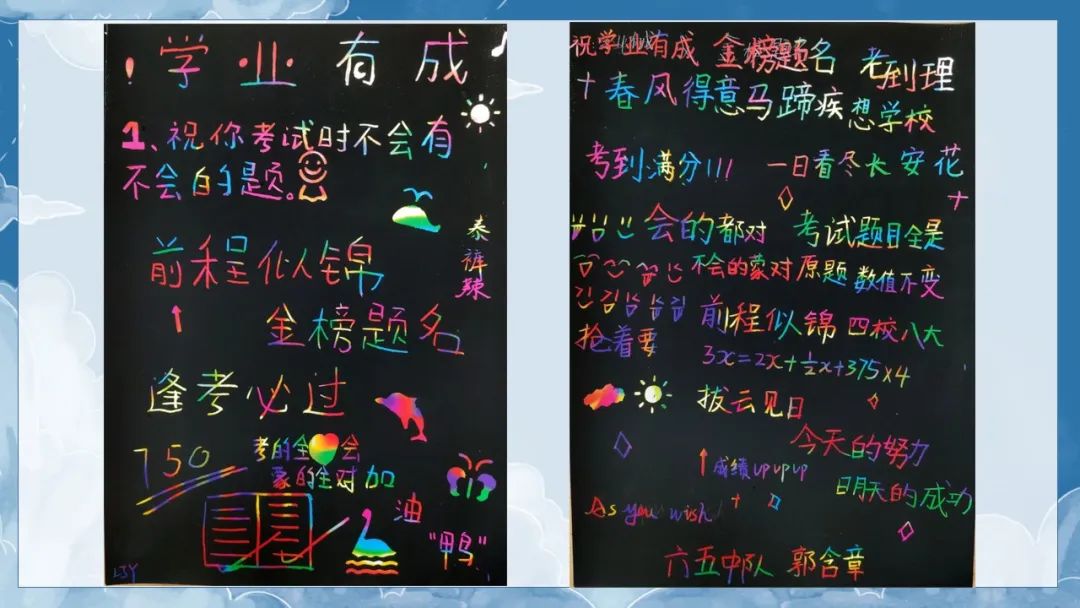 ! 学业有成
1、祝你考试时不会有
不会的题。
泰裤辣
前程似锦
金榜题名
逢考必过
750
考的全会
蒙的全对 加
油
"鸭"
LJY
祝学业有成 金榜题名 考到理
春风得意马蹄疾 想学校
考到满分!!! 一日看冬长安花
会的都对 考试题目全是
不会的蒙对 原题 数值不变
前程似锦 四校八大
抢着要
3x=2x+½x+375×4
拔云见日
今天的努力
成绩upupup
明天的成功
As you wish
六五中队 郭含章